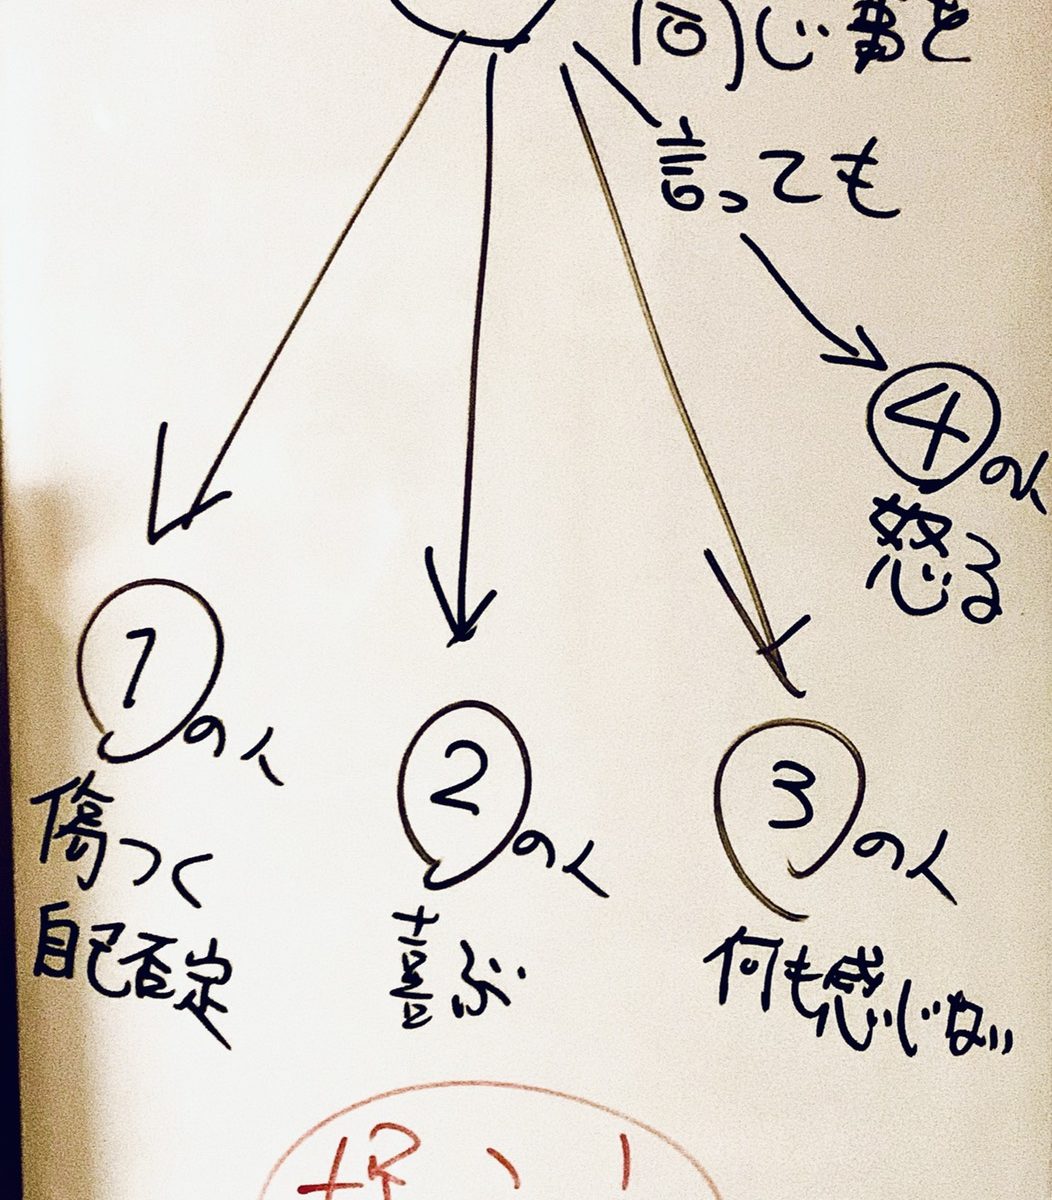 同じ事を
言っても
④の人
怒る
①の人
傷つく
自己否定
②の人
喜ぶ
③の人
何も感じない